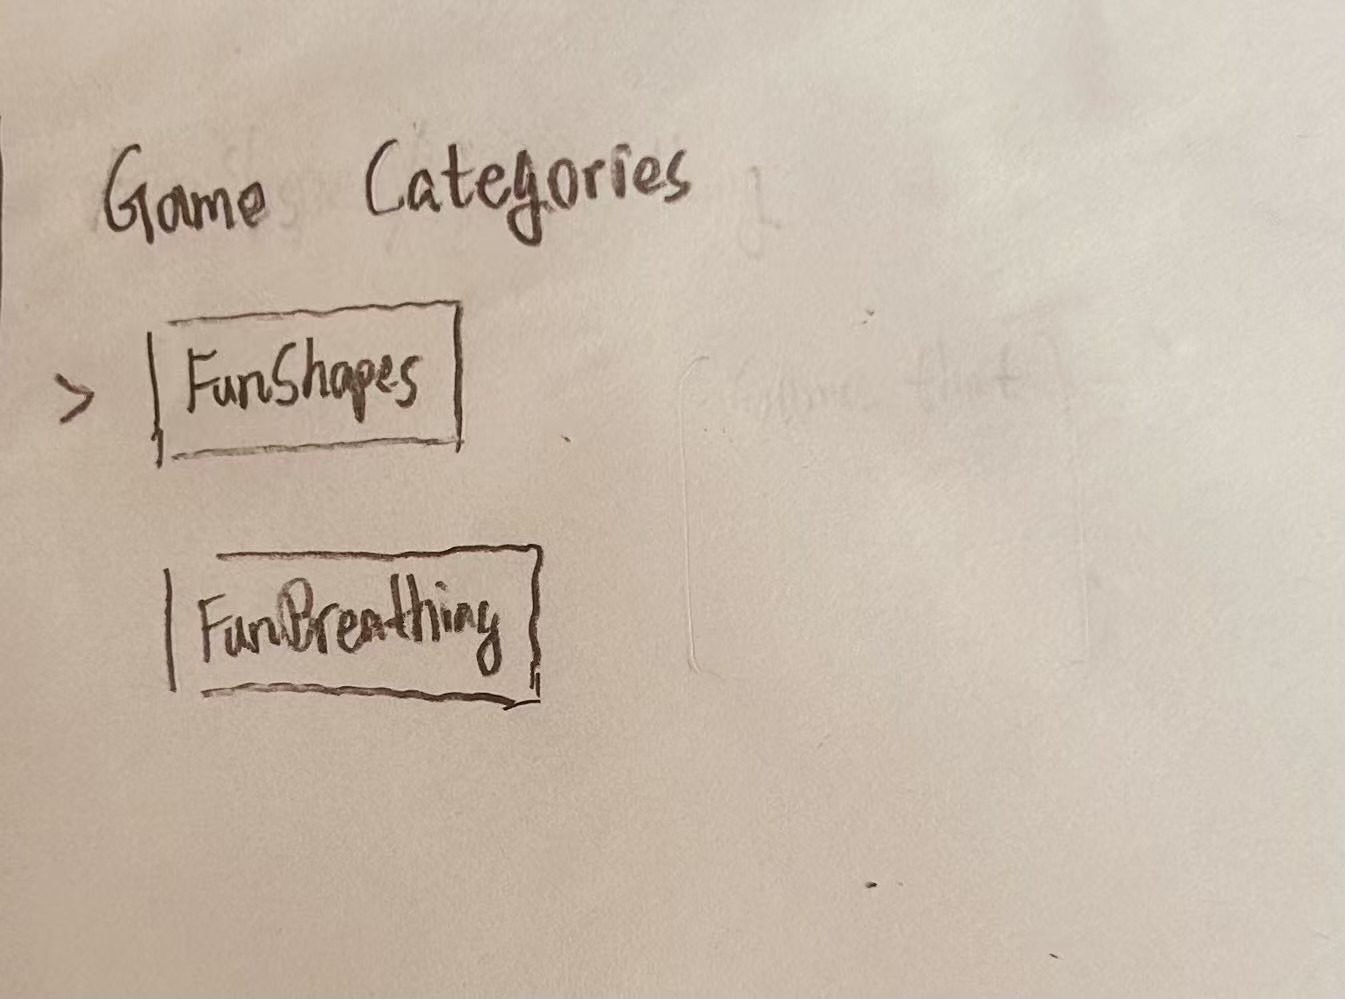 Game Categories
> FunShapes
FunBreathing